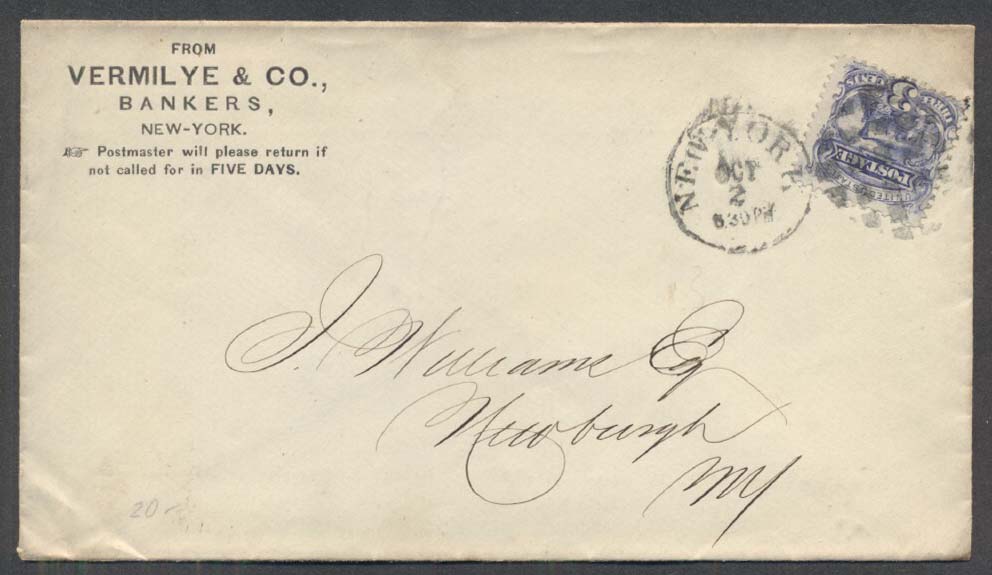 FROM
VERMILYE & CO.,
BANKERS,
NEW-YORK.
☞ Postmaster will please return if
not called for in FIVE DAYS.
NEW YORK
OCT
2
6.30 PM
3
CENTS
POSTAGE
UNITED STATES
J. Williams Esq
Newburgh
NY
20-